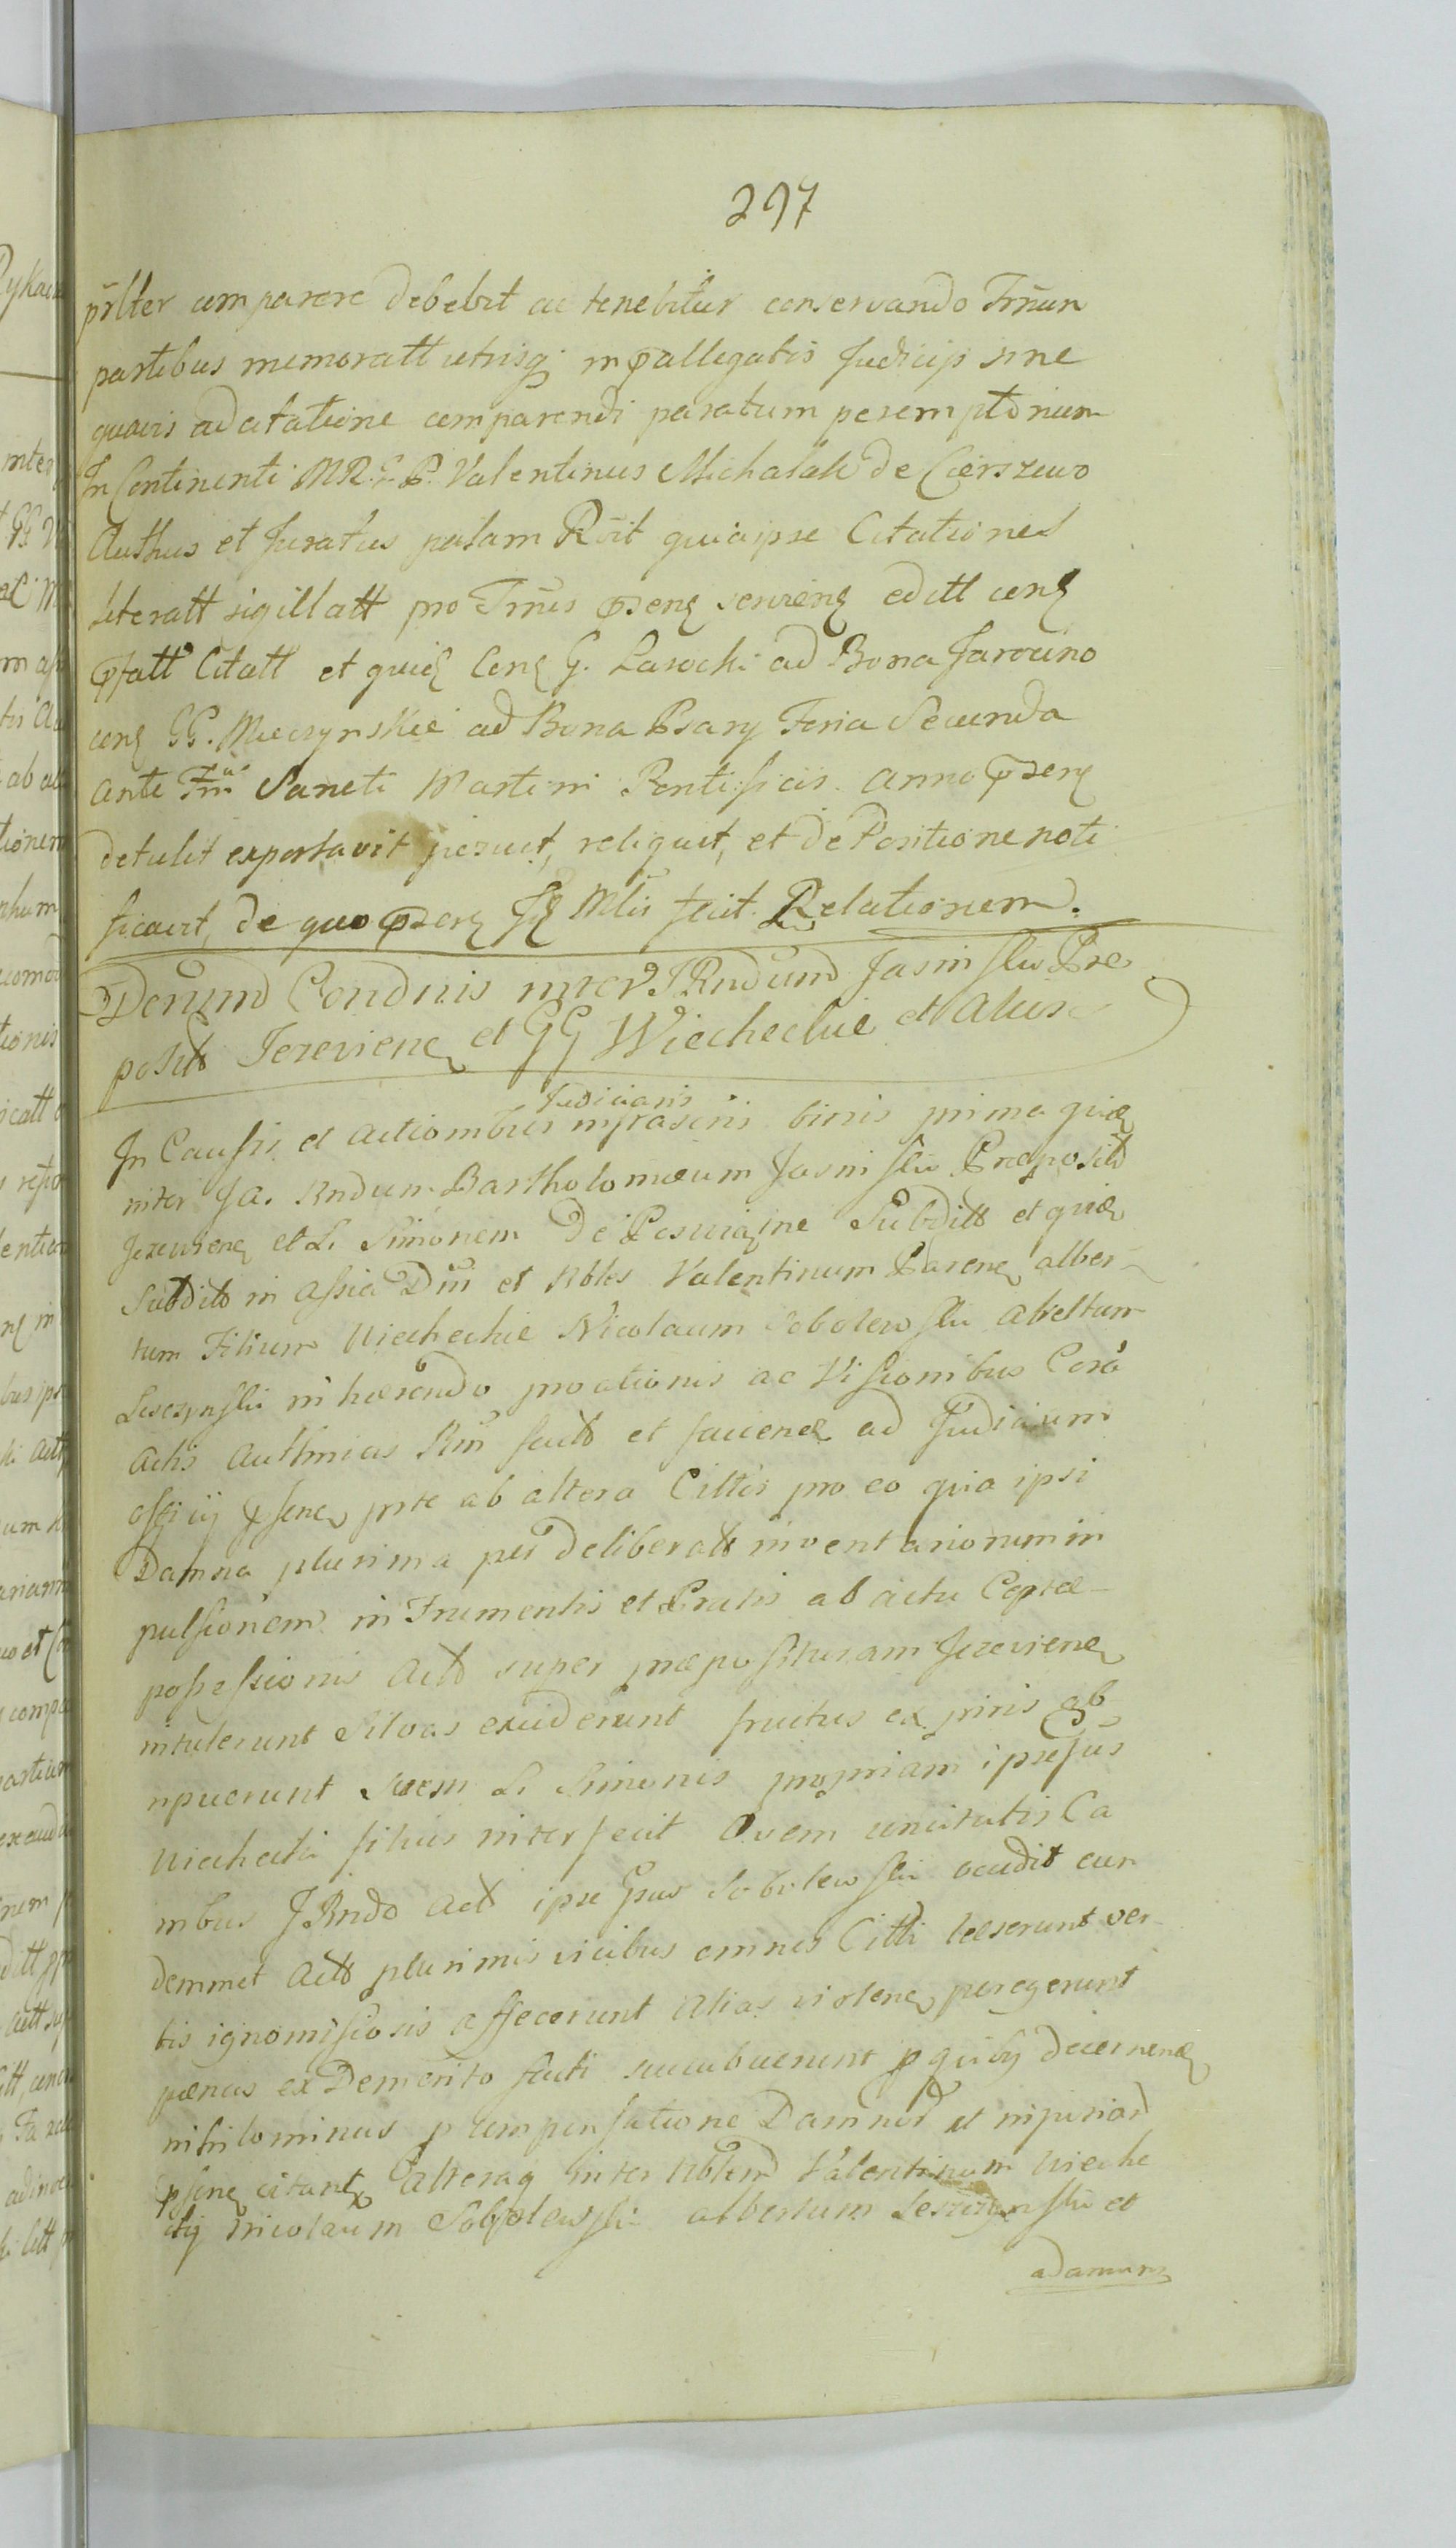 297
prlter comparere debebit ac tenebitur conservando Trnum
partibus memoratt utrisq; in p̃allegatis Judicijs sine
quavis adcitatione comparendi paratum peremptorium
In Continenti MR. E. P. Valentinus Michalak de Cierszewo
Authus et Juratus palam Rvit quia ipse Citationes
literatt sigillatt pro Trnis p̃senȩ servienȩ editt conȩ
p̃fatt Citatt et quiȩ Conȩ G. Lasocki ad Bona Jarocino
conȩ GG. Mieczynskie ad Bona Psary Feria Secunda
ante Ftũ Sancti Martini Pontificis anno p̃senȩ
detulit exportavit posuit, reliquit, et de Positione noti
ficavit, de quo p̃senȩ Mtis fecit Relationem.
Dcrumd Condnis inter JRndum Jasinski Præ
positt Jezevienȩ et GG Wiecheckie et Alios
Judiciaris
In Causis et actionibus infrascriis binis prima quidȩ
inter Ja. Rndum Bartholomæum Jasinski Præposittt
Jezevienȩ et L. Simonem De Posviȩtne Subditt et quidȩ
Subditt in assia Dni et Nbles Valentinum Parenȩ alber
tum Filium Wiecheckie Nicolaum Sobolewski Albertum
Lesczynski inhærendo proationis ac Visionibus Corã
Actis Authnicis Rm factt et facienȩ ad Judicium
officij p̃senȩ prte ab altera Cittis pro eo quia ipsi
Damna plurima per deliberatt inventariorum in
pulsionem in Frumentis et Pratis ab actu Coptæ
possessionis Actt super præposituram Jezevienȩ
intulerunt Silvas exciderunt fructus ex piris ab
ripuerunt Suem L. Simonis propriam ipsefus
Wiechecki filius interfecit Ovem uncitatis Ca
nibus JRndo Actt ipse Gsus Sobolewski occidit eun
demmet Actt plurimis vicibus omnes Citti læserunt ver
bis ignomisiosis affecerunt Alias violenȩ peregerunt
pœnas ex Demerito facti succubuerunt p quibȝ decernenȩ
nihilominus p compensatione Damnord et injuriard
p̃senȩ citantȩ Alteraq inter Nblemd Valentinum Wieche
ckij Nicolaum Sobolewski albertum Leszczynski et
adamum